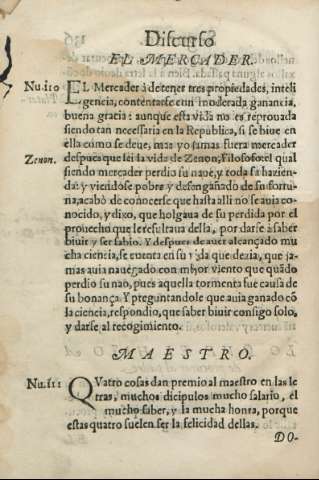 Discurso
EL MERCADER.
Nu.110 EL Mercader à de tener tres propiedades, inteli
gencia, contentarse con moderada ganancia,
buena gracia: aunque esta vida no es reprouada
siendo tan necessaria en la Republica, si se biue en
ella como se deue, mas yo jamas fuera mercader
Zenon. despues que lei la vida de Zenon, Filosofo: el qual
siendo mercader perdio su naue, y toda sa hazien-
da: y viendose pobre y desengañado de su fortu-
na, acabò de conocerse que hasta alli no se auia co-
nocido, y dixo, que holgaua de su perdida por el
prouecho que le resultaua della, por darse à saber
biuir y ser sabio. Y despues de auer alcançado mu
cha ciencia, se cuenta en su vida que dezia, que ja-
mas auia nauegado con mejor viento que quãdo
perdio su nao, pues aquella tormenta fue causa de
su bonança. Y preguntandole que auia ganado cõ
la ciencia, respondio, que saber biuir consigo solo,
y darse al recogimiento.
MAESTRO.
Nu.111 QVatro cosas dan premio al maestro en las le
tras, muchos dicipulos mucho salario, el
mucho saber, y la mucha honra, porque
estas quatro suelen ser la felicidad dellas.
DO-